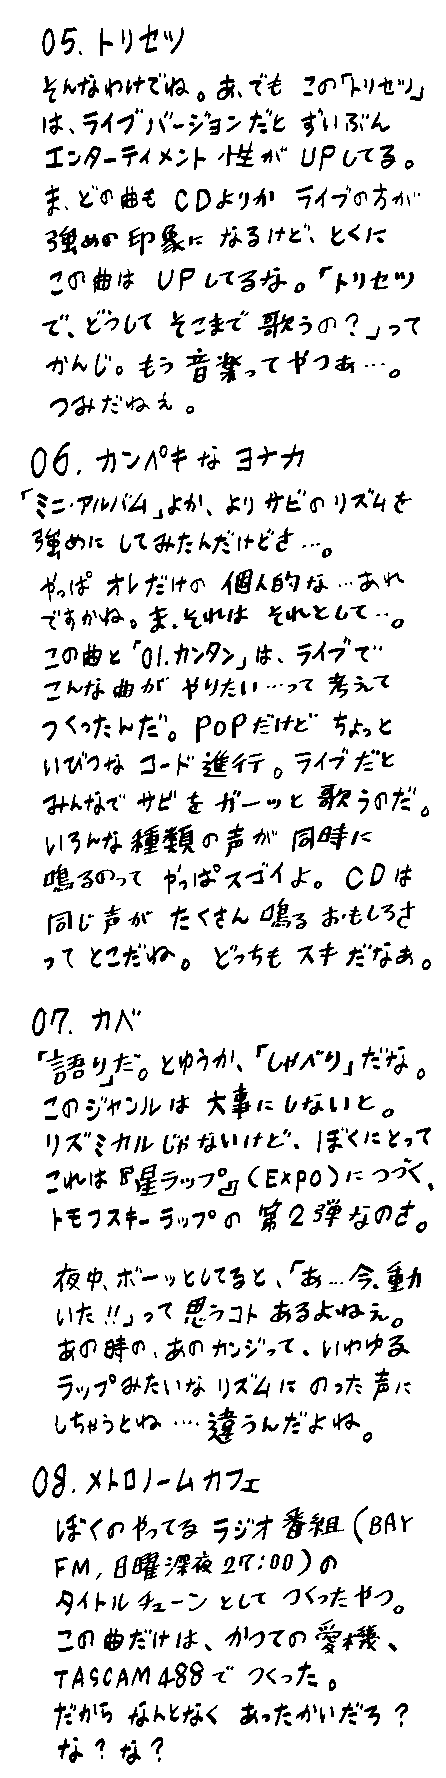 05. トリセツ
そんなわけでね。あ、でも この「トリセツ」
は、ライブバージョンだと ずいぶん
エンターティメント性が UPしてる。
ま、どの曲も CDよりか ライブの方が
強めの印象に なるけど、とくに
この曲は UPしてるな。「トリセツ
で、どうして そこまで 歌うの?」って
かんじ。もう 音楽ってやつぁ…。
つみだねぇ。
06. カンペキな ヨナカ
「ミニ・アルバム」よか、より サビの リズムを
強めに してみたんだけどさ…。
やっぱ オレだけの 個人的な…あれ
ですかね。ま、それは それとして…。
この曲と「01.カンタン」は、ライブで
こんな曲が やりたい…って 考えて
つくったんだ。POPだけど ちょっと
いびつな コード進行。ライブだと
みんなで サビを ガーッと 歌うのだ。
いろんな 種類の声が 同時に
鳴るのって やっぱスゴイよ。CDは
同じ声が たくさん 鳴る おもしろさ
ってとこだね。どっちも スキだなぁ。
07. カベ
「語り」だ。とゆうか、「しゃべり」だな。
このジャンルは 大事にしないと。
リズミカルじゃないけど、ぼくにとって
これは『星ラップ』(EXPO)につづく、
トモフスキーラップの 第2弾なのさ。
夜中、ボーッとしてると、「あ…今、動
いた!!」って 思うコト あるよねぇ。
あの時の、あのカンジって、いわゆる
ラップみたいな リズムに のった声に
しちゃうとね…違うんだよね。
08. メトロノームカフェ
ぼくのやってる ラジオ番組(BAY
FM, 日曜深夜27:00)の
タイトルチューンとして つくったやつ。
この曲だけは、かつての愛機、
TASCAM488で つくった。
だから なんとなく あったかいだろ?
な? な?